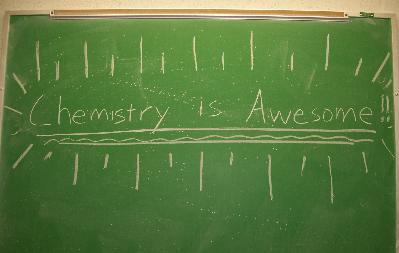 Chemistry is Awesome!!